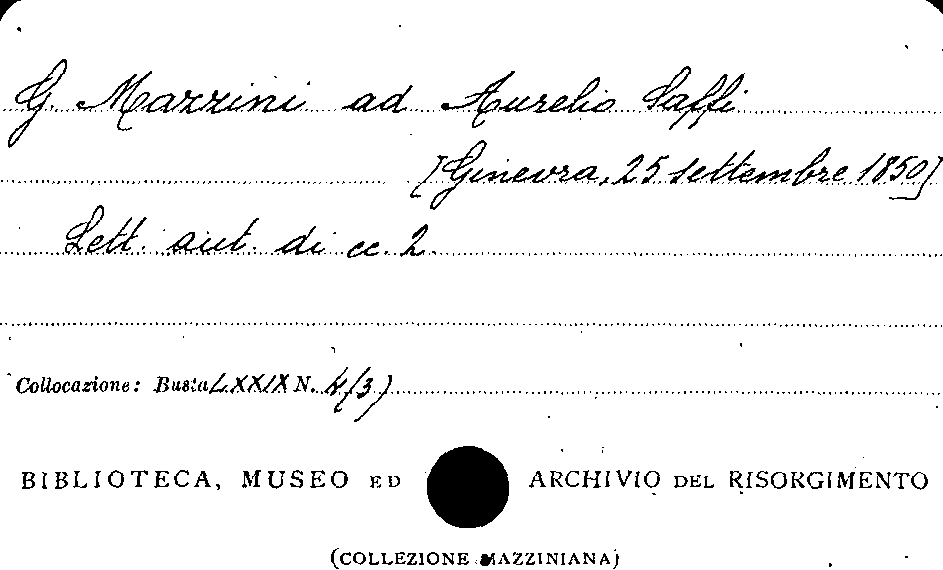 G. Mazzini ad Aurelio Saffi
[Ginevra, 25 settembre 1850]
Lett. aut. di cc. 2.
Collocazione: Busta LXXIX N. 4/3)
BIBLIOTECA, MUSEO ED ARCHIVIO DEL RISORGIMENTO
(COLLEZIONE MAZZINIANA)